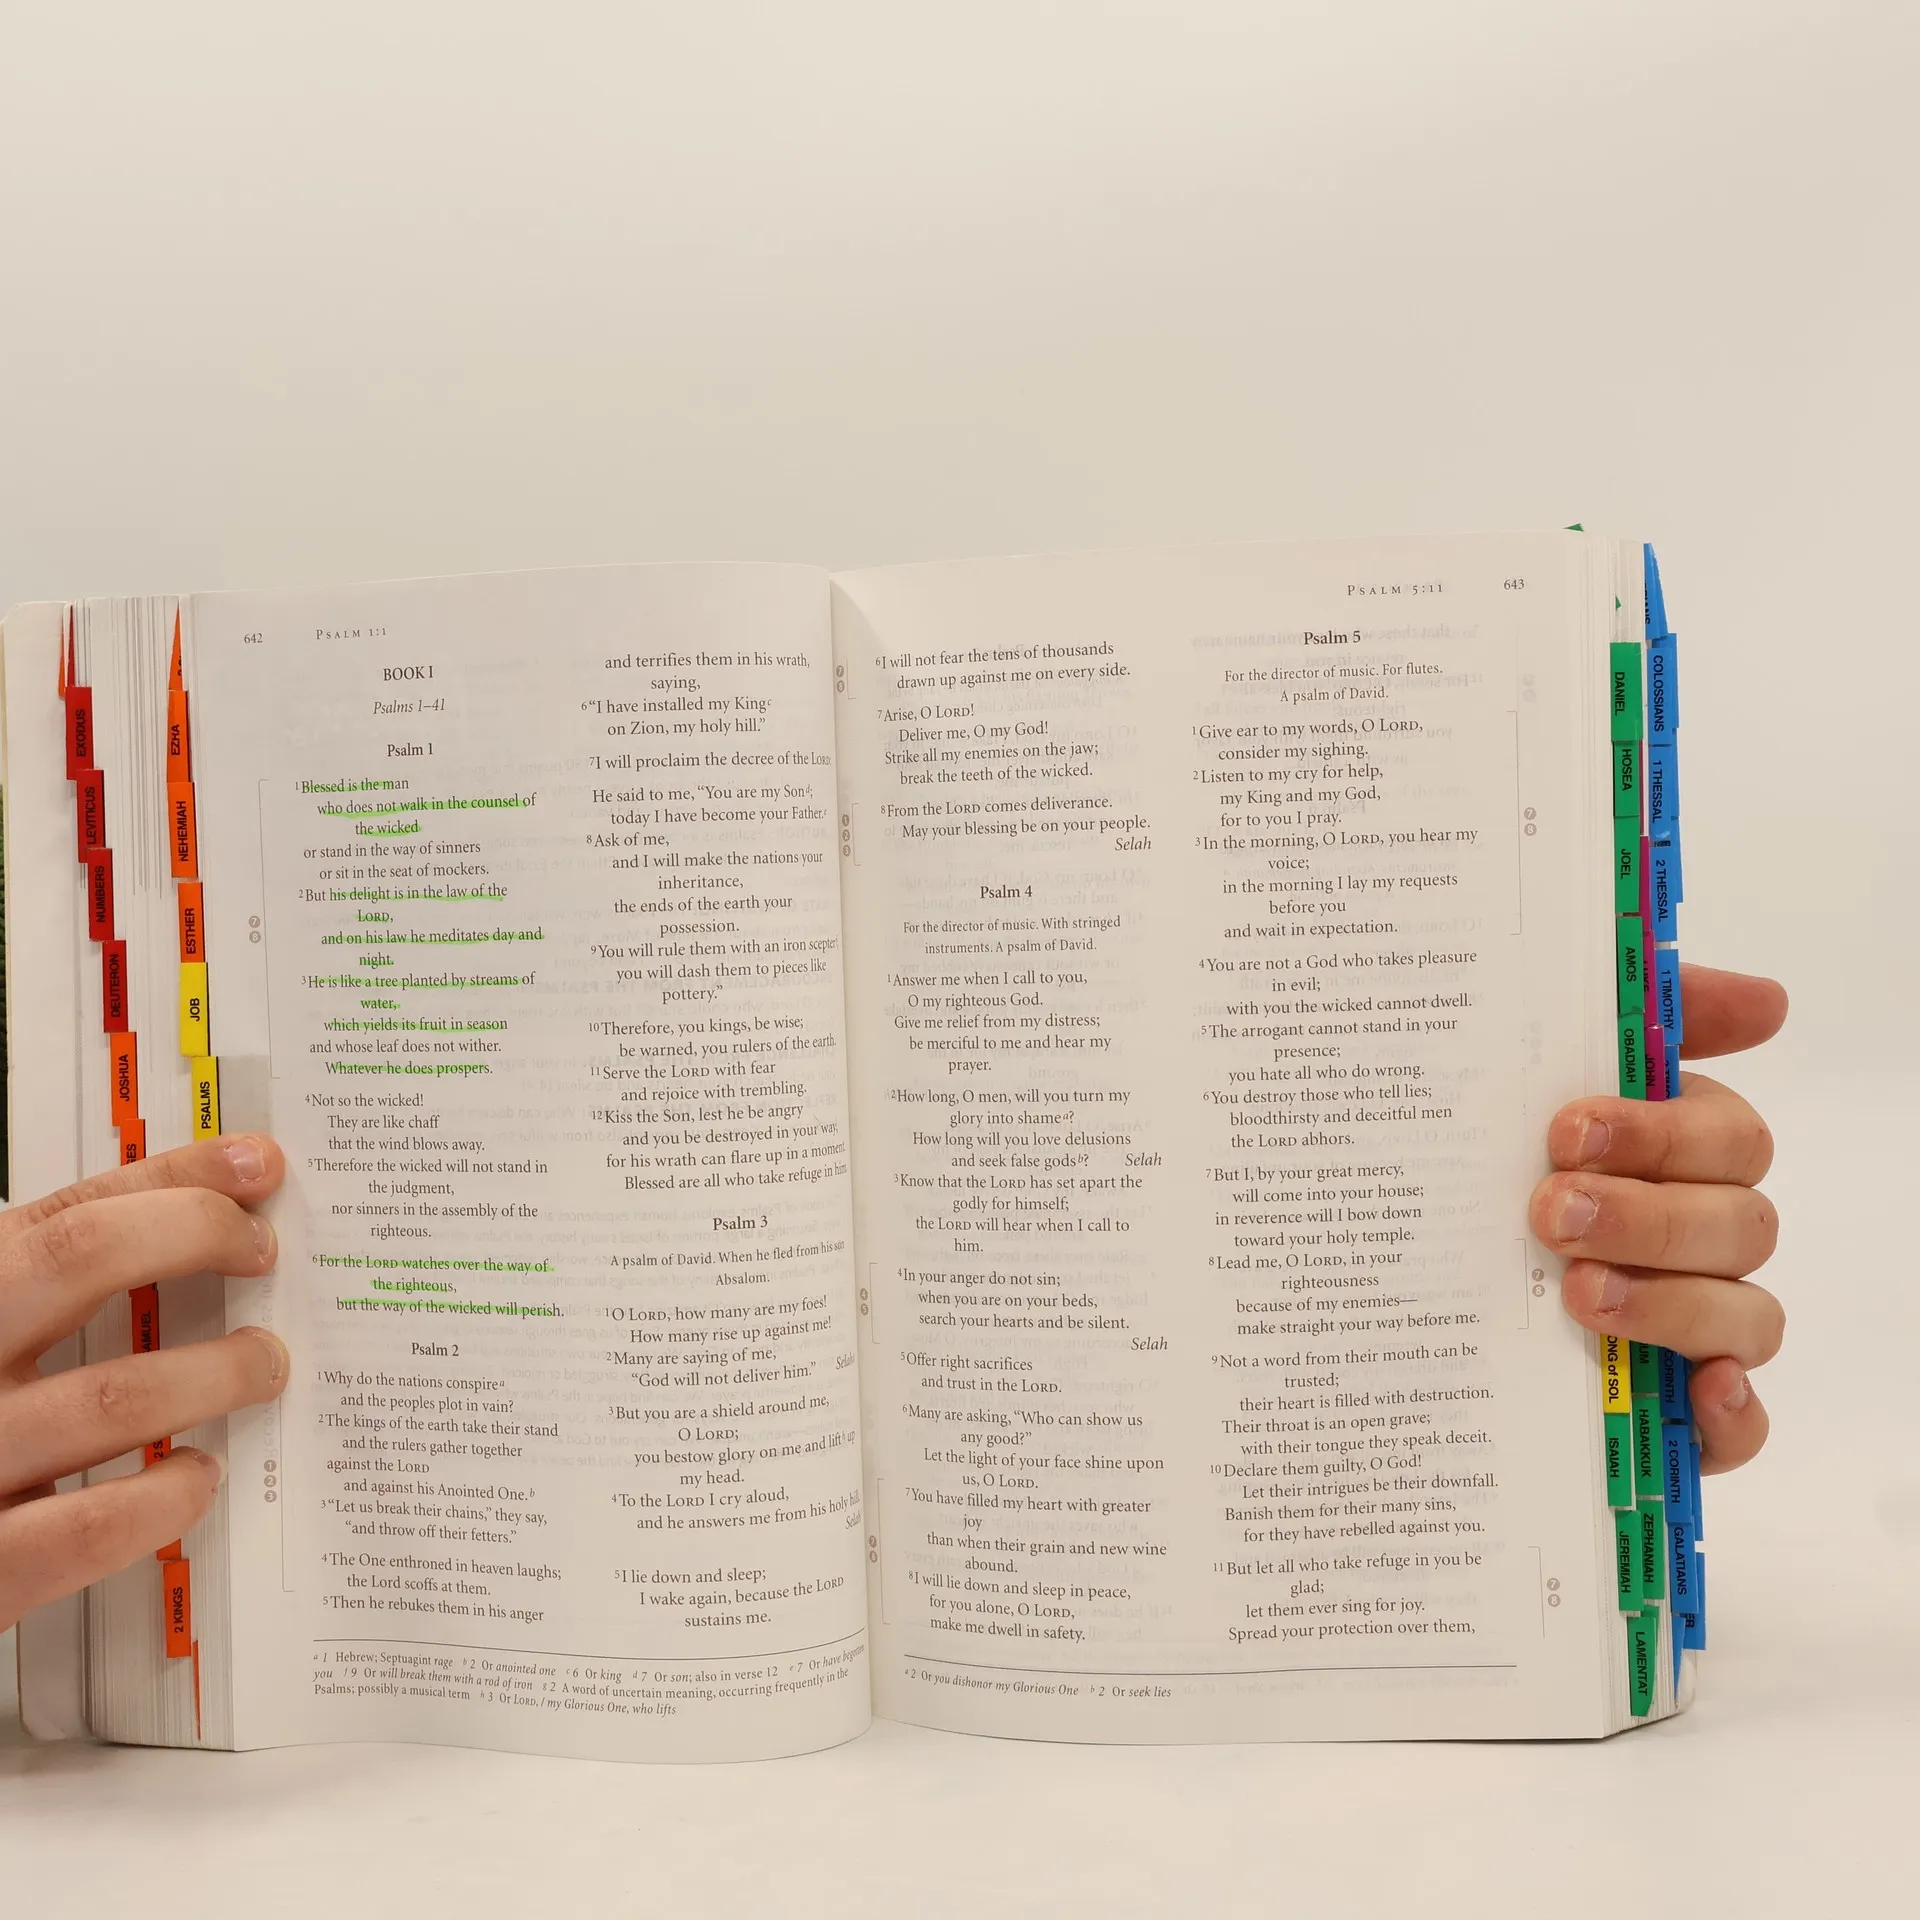 642
PSALM 1:1
BOOK I
Psalms 1–41
Psalm 1
1Blessed is the man
who does not walk in the counsel of
the wicked
or stand in the way of sinners
or sit in the seat of mockers.
2But his delight is in the law of the
LORD,
and on his law he meditates day and
night.
3He is like a tree planted by streams of
water,
which yields its fruit in season
and whose leaf does not wither.
Whatever he does prospers.
4Not so the wicked!
They are like chaff
that the wind blows away.
5Therefore the wicked will not stand in
the judgment,
nor sinners in the assembly of the
righteous.
6For the LORD watches over the way of
the righteous,
but the way of the wicked will perish.
Psalm 2
1Why do the nations conspirea
and the peoples plot in vain?
2The kings of the earth take their stand
and the rulers gather together
against the LORD
and against his Anointed One.b
3“Let us break their chains,” they say,
“and throw off their fetters.”
4The One enthroned in heaven laughs;
the Lord scoffs at them.
5Then he rebukes them in his anger
and terrifies them in his wrath,
saying,
6“I have installed my Kingc
on Zion, my holy hill.”
7I will proclaim the decree of the LORD:
He said to me, “You are my Sond;
today I have become your Father.e
8Ask of me,
and I will make the nations your
inheritance,
the ends of the earth your
possession.
9You will rule them with an iron scepterf
you will dash them to pieces like
pottery.”
10Therefore, you kings, be wise;
be warned, you rulers of the earth.
11Serve the LORD with fear
and rejoice with trembling.
12Kiss the Son, lest he be angry
and you be destroyed in your way,
for his wrath can flare up in a moment.
Blessed are all who take refuge in him.
Psalm 3
A psalm of David. When he fled from his son
Absalom.
1O LORD, how many are my foes!
How many rise up against me!
2Many are saying of me,
“God will not deliver him.” Selahg
3But you are a shield around me,
O LORD;
you bestow glory on me and lifth up
my head.
4To the LORD I cry aloud,
and he answers me from his holy hill.
Selah
5I lie down and sleep;
I wake again, because the LORD
sustains me.
a 1 Hebrew; Septuagint rage b 2 Or anointed one c 6 Or king d 7 Or son; also in verse 12 e 7 Or have begotten
you f 9 Or will break them with a rod of iron g 2 A word of uncertain meaning, occurring frequently in the
Psalms; possibly a musical term h 3 Or LORD, / my Glorious One, who lifts
PSALM 5:11
643
6I will not fear the tens of thousands
drawn up against me on every side.
7Arise, O LORD!
Deliver me, O my God!
Strike all my enemies on the jaw;
break the teeth of the wicked.
8From the LORD comes deliverance.
May your blessing be on your people.
Selah
Psalm 4
For the director of music. With stringed
instruments. A psalm of David.
1Answer me when I call to you,
O my righteous God.
Give me relief from my distress;
be merciful to me and hear my
prayer.
2How long, O men, will you turn my
glory into shamea?
How long will you love delusions
and seek false godsb? Selah
3Know that the LORD has set apart the
godly for himself;
the LORD will hear when I call to
him.
4In your anger do not sin;
when you are on your beds,
search your hearts and be silent.
Selah
5Offer right sacrifices
and trust in the LORD.
6Many are asking, “Who can show us
any good?”
Let the light of your face shine upon
us, O LORD.
7You have filled my heart with greater
joy
than when their grain and new wine
abound.
8I will lie down and sleep in peace,
for you alone, O LORD,
make me dwell in safety.
a 2 Or you dishonor my Glorious One b 2 Or seek lies
Psalm 5
For the director of music. For flutes.
A psalm of David.
1Give ear to my words, O LORD,
consider my sighing.
2Listen to my cry for help,
my King and my God,
for to you I pray.
3In the morning, O LORD, you hear my
voice;
in the morning I lay my requests
before you
and wait in expectation.
4You are not a God who takes pleasure
in evil;
with you the wicked cannot dwell.
5The arrogant cannot stand in your
presence;
you hate all who do wrong.
6You destroy those who tell lies;
bloodthirsty and deceitful men
the LORD abhors.
7But I, by your great mercy,
will come into your house;
in reverence will I bow down
toward your holy temple.
8Lead me, O LORD, in your
righteousness
because of my enemies—
make straight your way before me.
9Not a word from their mouth can be
trusted;
their heart is filled with destruction.
Their throat is an open grave;
with their tongue they speak deceit.
10Declare them guilty, O God!
Let their intrigues be their downfall.
Banish them for their many sins,
for they have rebelled against you.
11But let all who take refuge in you be
glad;
let them ever sing for joy.
Spread your protection over them,
EXODUS
LEVITICUS
NUMBERS
DEUTERON
JOSHUA
GES
AMUEL
2 S
2 KINGS
EZRA
NEHEMIAH
ESTHER
JOB
PSALMS
DANIEL
HOSEA
JOEL
AMOS
OBADIAH
ONG of SOL
ISAIAH
JEREMIAH
LAMENTAT
UM
HABAKKUK
ZEPHANIAH
LUKE
JOHN
COLOSSIANS
1 THESSAL
2 THESSAL
1 TIMOTHY
CORINTH
2 CORINTH
GALATIANS